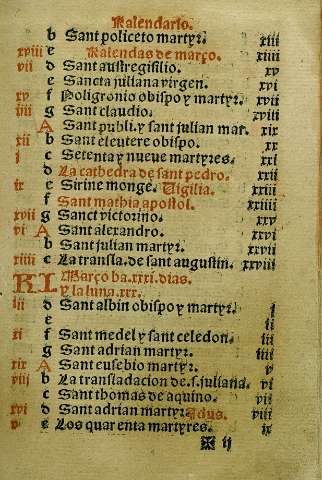 Kalendario.
b Sant policeto martyꝛ. xiii
xviii e Kalendas de março. xiiii
vii d Sant austregisilio. xv
e Sancta juliana virgen. xvi
xv f Poligronio obispo y martyꝛ. xvii
iiii g Sant claudio. xviii
A Sant publi. y sant julian mar. xix
xii b Sant eleutere obispo. xx
j c Setenta y nueve martyres. xxi
d La cathedra de sant pedro. xxii
ix e Sirine monge. Uigilia. xxiii
f Sant mathia apostol. xxiiii
xvii g Sanct victorino. xxv
vi A Sant alexandro. xxvi
b Sant julian martyꝛ. xxvii
xiiii c La transla. de sant augustin. xxviii
KL Março ha .xxxi. dias.
y la luna .xxx.
iii d Sant albin obispo y martyꝛ. j
e ij
xi f Sant medel y sant celedon. iij
g Sant adrian martyꝛ. iiij
xix A Sant eusebio martyꝛ. v
viij b La transladacion de .s. juliana. vi
c Sant thomas de aquino. vii
xvi d Sant adrian martyꝛ. Idus. viii
v e Los quarenta martyres. ix
✠ ij